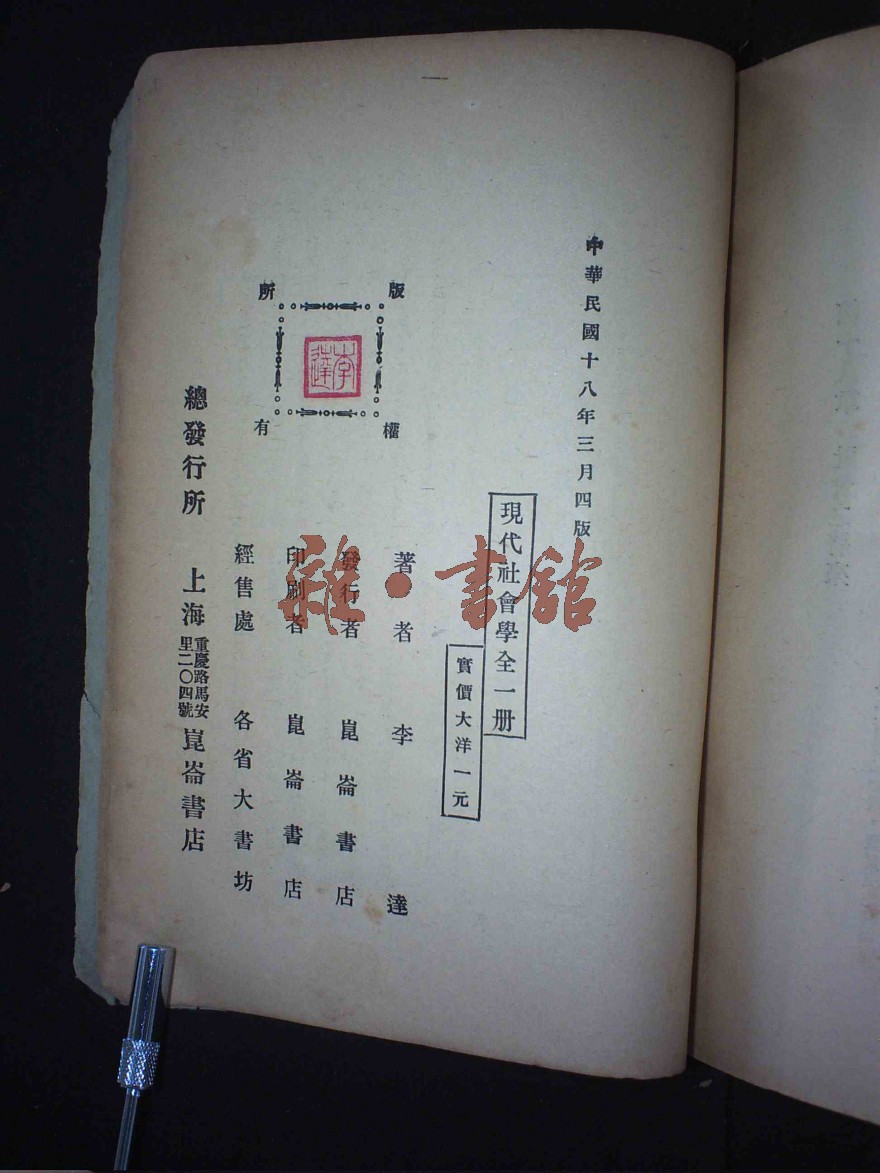 中華民國十八年三月四版
現代社會學全一册
實價大洋一元
著者 李達
發行者 崑崙書店
印刷者 崑崙書店
經售處 各省大書坊
版權所有
李達
總發行所 上海重慶路馬安里二〇四號崑崙書店
雜·書館